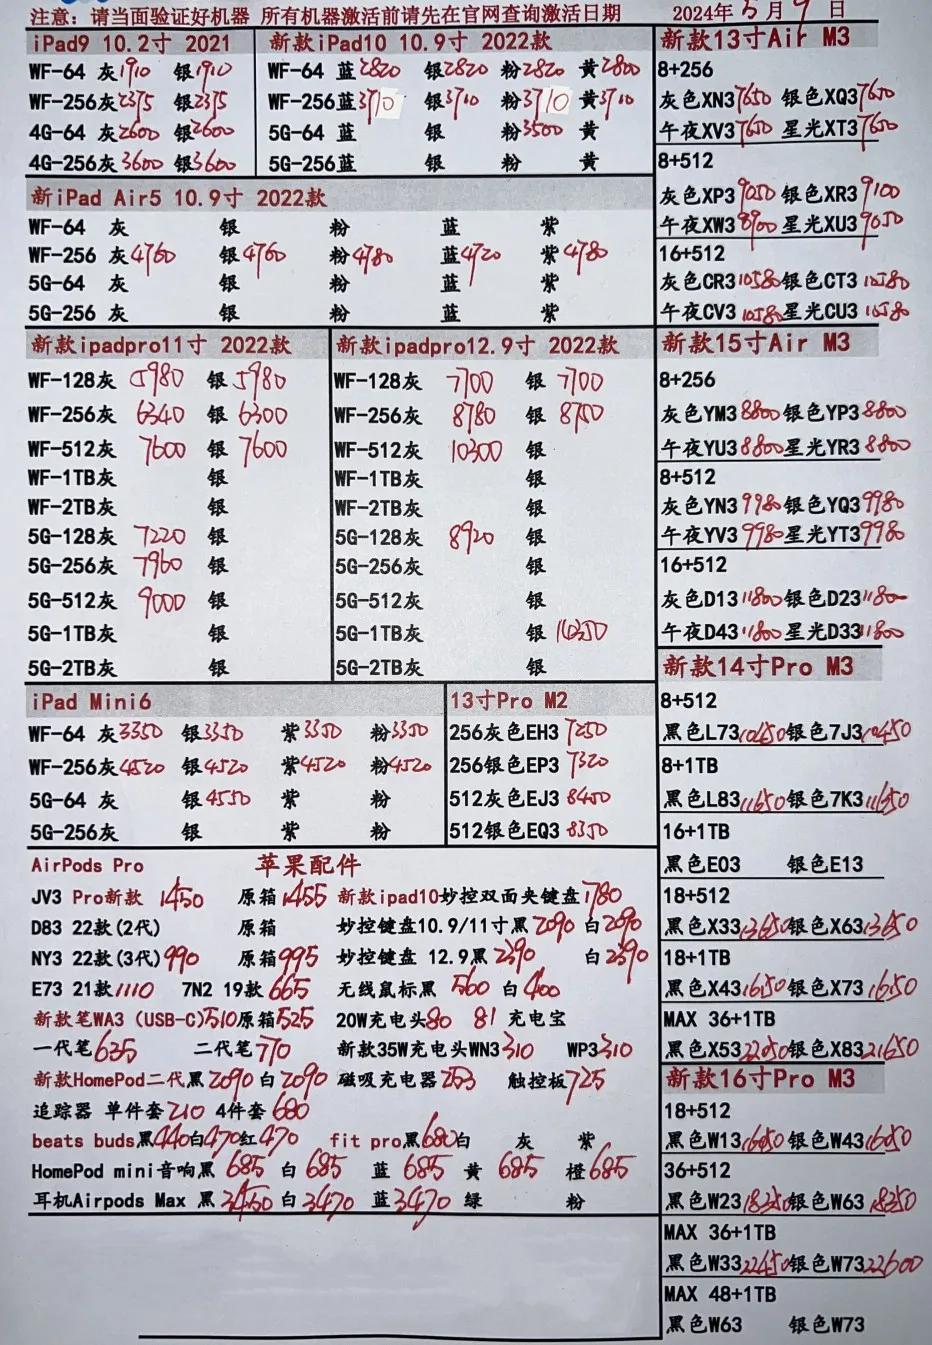 注意：请当面验证好机器 所有机器激活前请先在官网查询激活日期 2024年5月9日
iPad9 10.2寸 2021
WF-64 灰1910 银1910
WF-256灰2375 银2375
4G-64 灰2600 银2600
4G-256灰3600 银3600
新款iPad10 10.9寸 2022款
WF-64 蓝2820 银2820 粉2820 黄2800
WF-256蓝3710 银3710 粉3710 黄3710
5G-64 蓝 银 粉3500 黄
5G-256蓝 银 粉 黄
新iPad Air5 10.9寸 2022款
WF-64 灰 银 粉 蓝 紫
WF-256 灰4760 银4760 粉4780 蓝4720 紫4780
5G-64 灰 银 粉 蓝 紫
5G-256 灰 银 粉 蓝 紫
新款ipadpro11寸 2022款
WF-128灰 5980 银 5980
WF-256灰 6340 银 6300
WF-512灰 7600 银 7600
WF-1TB灰 银
WF-2TB灰 银
5G-128灰 7220 银
5G-256灰 7960 银
5G-512灰 9000 银
5G-1TB灰 银
5G-2TB灰 银
新款ipadpro12.9寸 2022款
WF-128灰 7700 银 7700
WF-256灰 8780 银
WF-512灰 10300 银
WF-1TB灰 银
WF-2TB灰 银
5G-128灰 8920 银
5G-256灰 银
5G-512灰 银
5G-1TB灰 银
5G-2TB灰 银
iPad Mini6
WF-64 灰3350 银3350 紫3350 粉3350
WF-256灰4520 银4520 紫4520 粉4520
5G-64 灰 银4550 紫 粉
5G-256灰 银 紫 粉
13寸Pro M2
256灰色EH3 7250
256银色EP3 7320
512灰色EJ3 8450
512银色EQ3 8350
AirPods Pro 苹果配件
JV3 Pro新款 1450 原箱1455 新款ipad10妙控双面夹键盘1780
D83 22款(2代) 原箱 妙控键盘10.9/11寸黑2090 白2090
NY3 22款(3代)990 原箱995 妙控键盘 12.9黑2590 白2590
E73 21款1110 7N2 19款665 无线鼠标黑 560 白400
新款笔WA3 (USB-C)510原箱525 20W充电头80 81 充电宝
一代笔635 二代笔770 新款35W充电头WN3310 WP3310
新款HomePod二代黑2090 白2090 磁吸充电器253 触控板725
追踪器 单件套210 4件套680
beats buds黑440白470红470 fit pro黑680白 灰 紫
HomePod mini音响黑 685 白 685 蓝 685 黄 685 橙685
耳机Airpods Max 黑3450 白3470 蓝3470 绿 粉
新款13寸Air M3
8+256
灰色XN37650 银色XQ37650
午夜XV37650 星光XT37650
8+512
灰色XP39050 银色XR39100
午夜XW38900 星光XU39050
16+512
灰色CR310580银色CT310580
午夜CV310580星光CU310580
新款15寸Air M3
8+256
灰色YM38800银色YP38800
午夜YU38800星光YR38800
8+512
灰色YN39980银色YQ39980
午夜YV39980星光YT39980
16+512
灰色D1311800银色D2311800
午夜D4311800星光D3311800
新款14寸Pro M3
8+512
黑色L7310450银色7J310450
8+1TB
黑色L8311650银色7K311650
16+1TB
黑色E03 银色E13
18+512
黑色X3313650银色X6313650
18+1TB
黑色X4316150银色X7316150
MAX 36+1TB
黑色X5322050银色X8321650
新款16寸Pro M3
18+512
黑色W1316050银色W4316050
36+512
黑色W2318250银色W6318250
MAX 36+1TB
黑色W3322450银色W7322600
MAX 48+1TB
黑色W63 银色W73